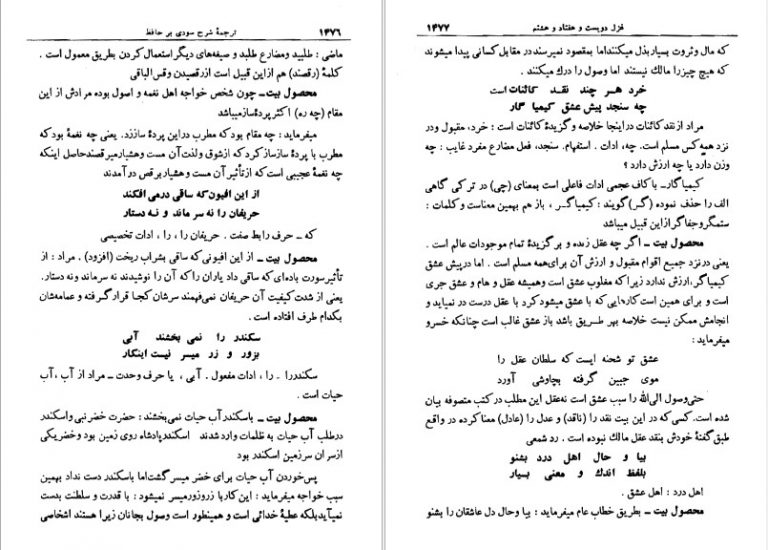 ۱۴۷۶ ترجمهٔ شرح سودی بر حافظ
ماضی : طلبید ومضارع طلبد و صیغه‌های دیگر استعمال کردن بطریق معمول است .
کلمهٔ (رقصند) هم از این قبیل است از رقصیدن وقس الباقی
محصول بیت ــ چون شخص خواجه اهل نغمه و اصول بوده مرادش از این
مقام (چه ره) اکثر پردهٔ ساز میباشد
میفرماید : چه مقام بود که مطرب در این پردهٔ ساز زد. یعنی چه نغمهٔ بود که
مطرب با پردهٔ ساز ساز کرد که از شوق ولذت آن مست وهشیار میرقصند حاصل اینکه
چه نغمهٔ عجیبی است که از تأثیر آن مست و هشیار برقص در آمدند
از این افیون که ساقی درمی افکند
حریفان را نه سر ماند و نه دستار
که ــ حرف رابط صفت . حریفان را ، را ، ادات تخصیصی
محصول بیت ــ از این افیونی که ساقی بشراب ریخت (افزود) . مراد : از
تأثیر سورت باده‌ای که ساقی داد یاران را که آن را نوشیدند نه سرماند ونه دستار.
یعنی از شدت کیفیت آن حریفان نمی‌فهمند سرشان کجا قرار گرفته و عمامه‌شان
بکدام طرف افتاده است .
سکندر را نمی بخشند آبی
بزور و زر میسر نیست اینکار
سکندررا ــ را ، ادات مفعول . آبی ، یا حرف وحدت ــ مراد از آب ، آب
حیات است .
محصول بیت ــ باسکندر آب حیات نمی‌بخشند : حضرت خضر نبی واسکندر
درطلب آب حیات به ظلمات وارد شدند اسکندر پادشاه روی زمین بود وخضر یکی
از سران سرزمین اسکندر بود
پس خوردن آب حیات برای خضر میسر گشت اما باسکندر دست نداد بهمین
سبب خواجه میفرماید : این کار با زروزور میسر نمیشود : با قدرت و سلطنت بدست
نمیآید بلکه عطیهٔ خدائی است و همینطور است وصول بجانان زیرا هستند اشخاصی
غزل دویست و هفتاد و هشتم ۱۴۷۷
که مال وثروت بسیار بذل میکنند اما بمقصود نمیرسند در مقابل کسانی پیدا میشوند
که هیچ چیز را مالك نیستند اما وصول را درك میکنند .
خرد هــر چند نقــد کائنات است
چه سنجد پیش عشق کیمیا گار
مراد از نقد کائنات در اینجا خلاصه و گزیدهٔ کائنات است : خرد، مقبول ودر
نزد همه کس مسلم است. چه، ادات . استفهام. سنجد، فعل مضارع مفرد غایب : چه
وزن دارد یا چه ارزش دارد ؟
کیمیاگارــ با کاف عجمی ادات فاعلی است بمعنای (چی) در ترکی گاهی
الف را حذف نموده (گــر) گویند : کیمیاگــر ، باز هم بهمین معناست و کلمات :
ستمگر وجفاگر از این قبیل میباشد
محصول بیت ــ اگر چه عقل زبده و برگزیدهٔ تمام موجودات عالم است .
یعنی درنزد جمیع اقوام مقبول و ارزش آن برای همه مسلم است . اما درپیش عشق
کیمیاگر، ارزش ندارد زیرا که مغلوب عشق است وهمیشه عقل و هام و عشق جری
است و برای همین است کارهایی که با عشق میشود کرد با عقل درست در نمیاید و
انجامش ممکن نیست خلاصه بهر طریق باشد باز عشق غالب است چنانکه خسرو
میفرماید :
عشق تو شحنه ایست که سلطان عقل را
موی جبین گرفته بچاوشی آورد
حتی وصول الی‌الله را سبب عشق است نه عقل این مطلب در کتب متصوفه بیان
شده است. کسی که در این بیت نقد را (ناقد) و عدل را (عادل) معنا کرده در واقع
طبق گفتهٔ خودش بنقد عقل مالك نبوده است . رد شمعی
بیا و حال اهل درد بشنو
بلفظ اندك و معنی بسیار
اهل درد : اهل عشق .
محصول بیت ــ بطریق خطاب عام میفرماید : بیا وحال دل عاشقان را بشنو